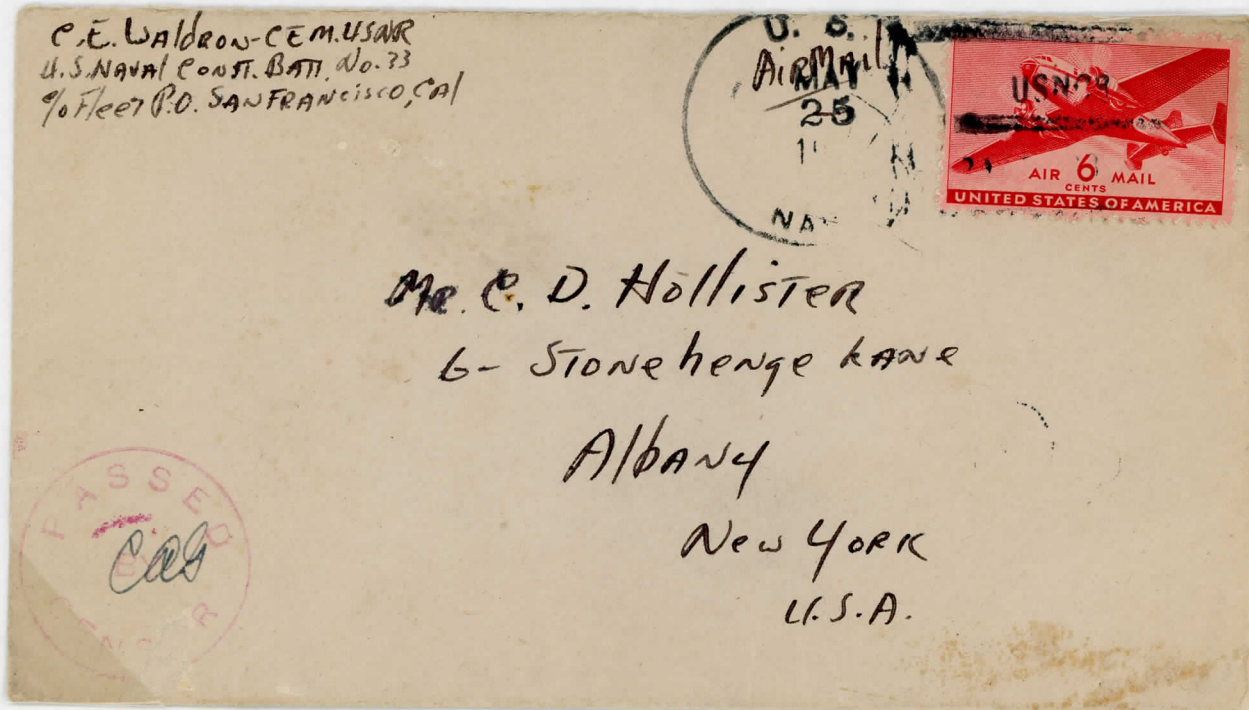 C.E. Waldron-CEM.USNR
U.S. Naval Const. Batt. No. 33
c/o Fleet P.O. San Francisco, Cal
U. S.
Air Mail
MAY
25
USNCB
AIR 6 MAIL
CENTS
UNITED STATES OF AMERICA
Mr. C. D. Hollister
6- Stonehenge Lane
Albany
New York
U.S.A.
PASSED
BY